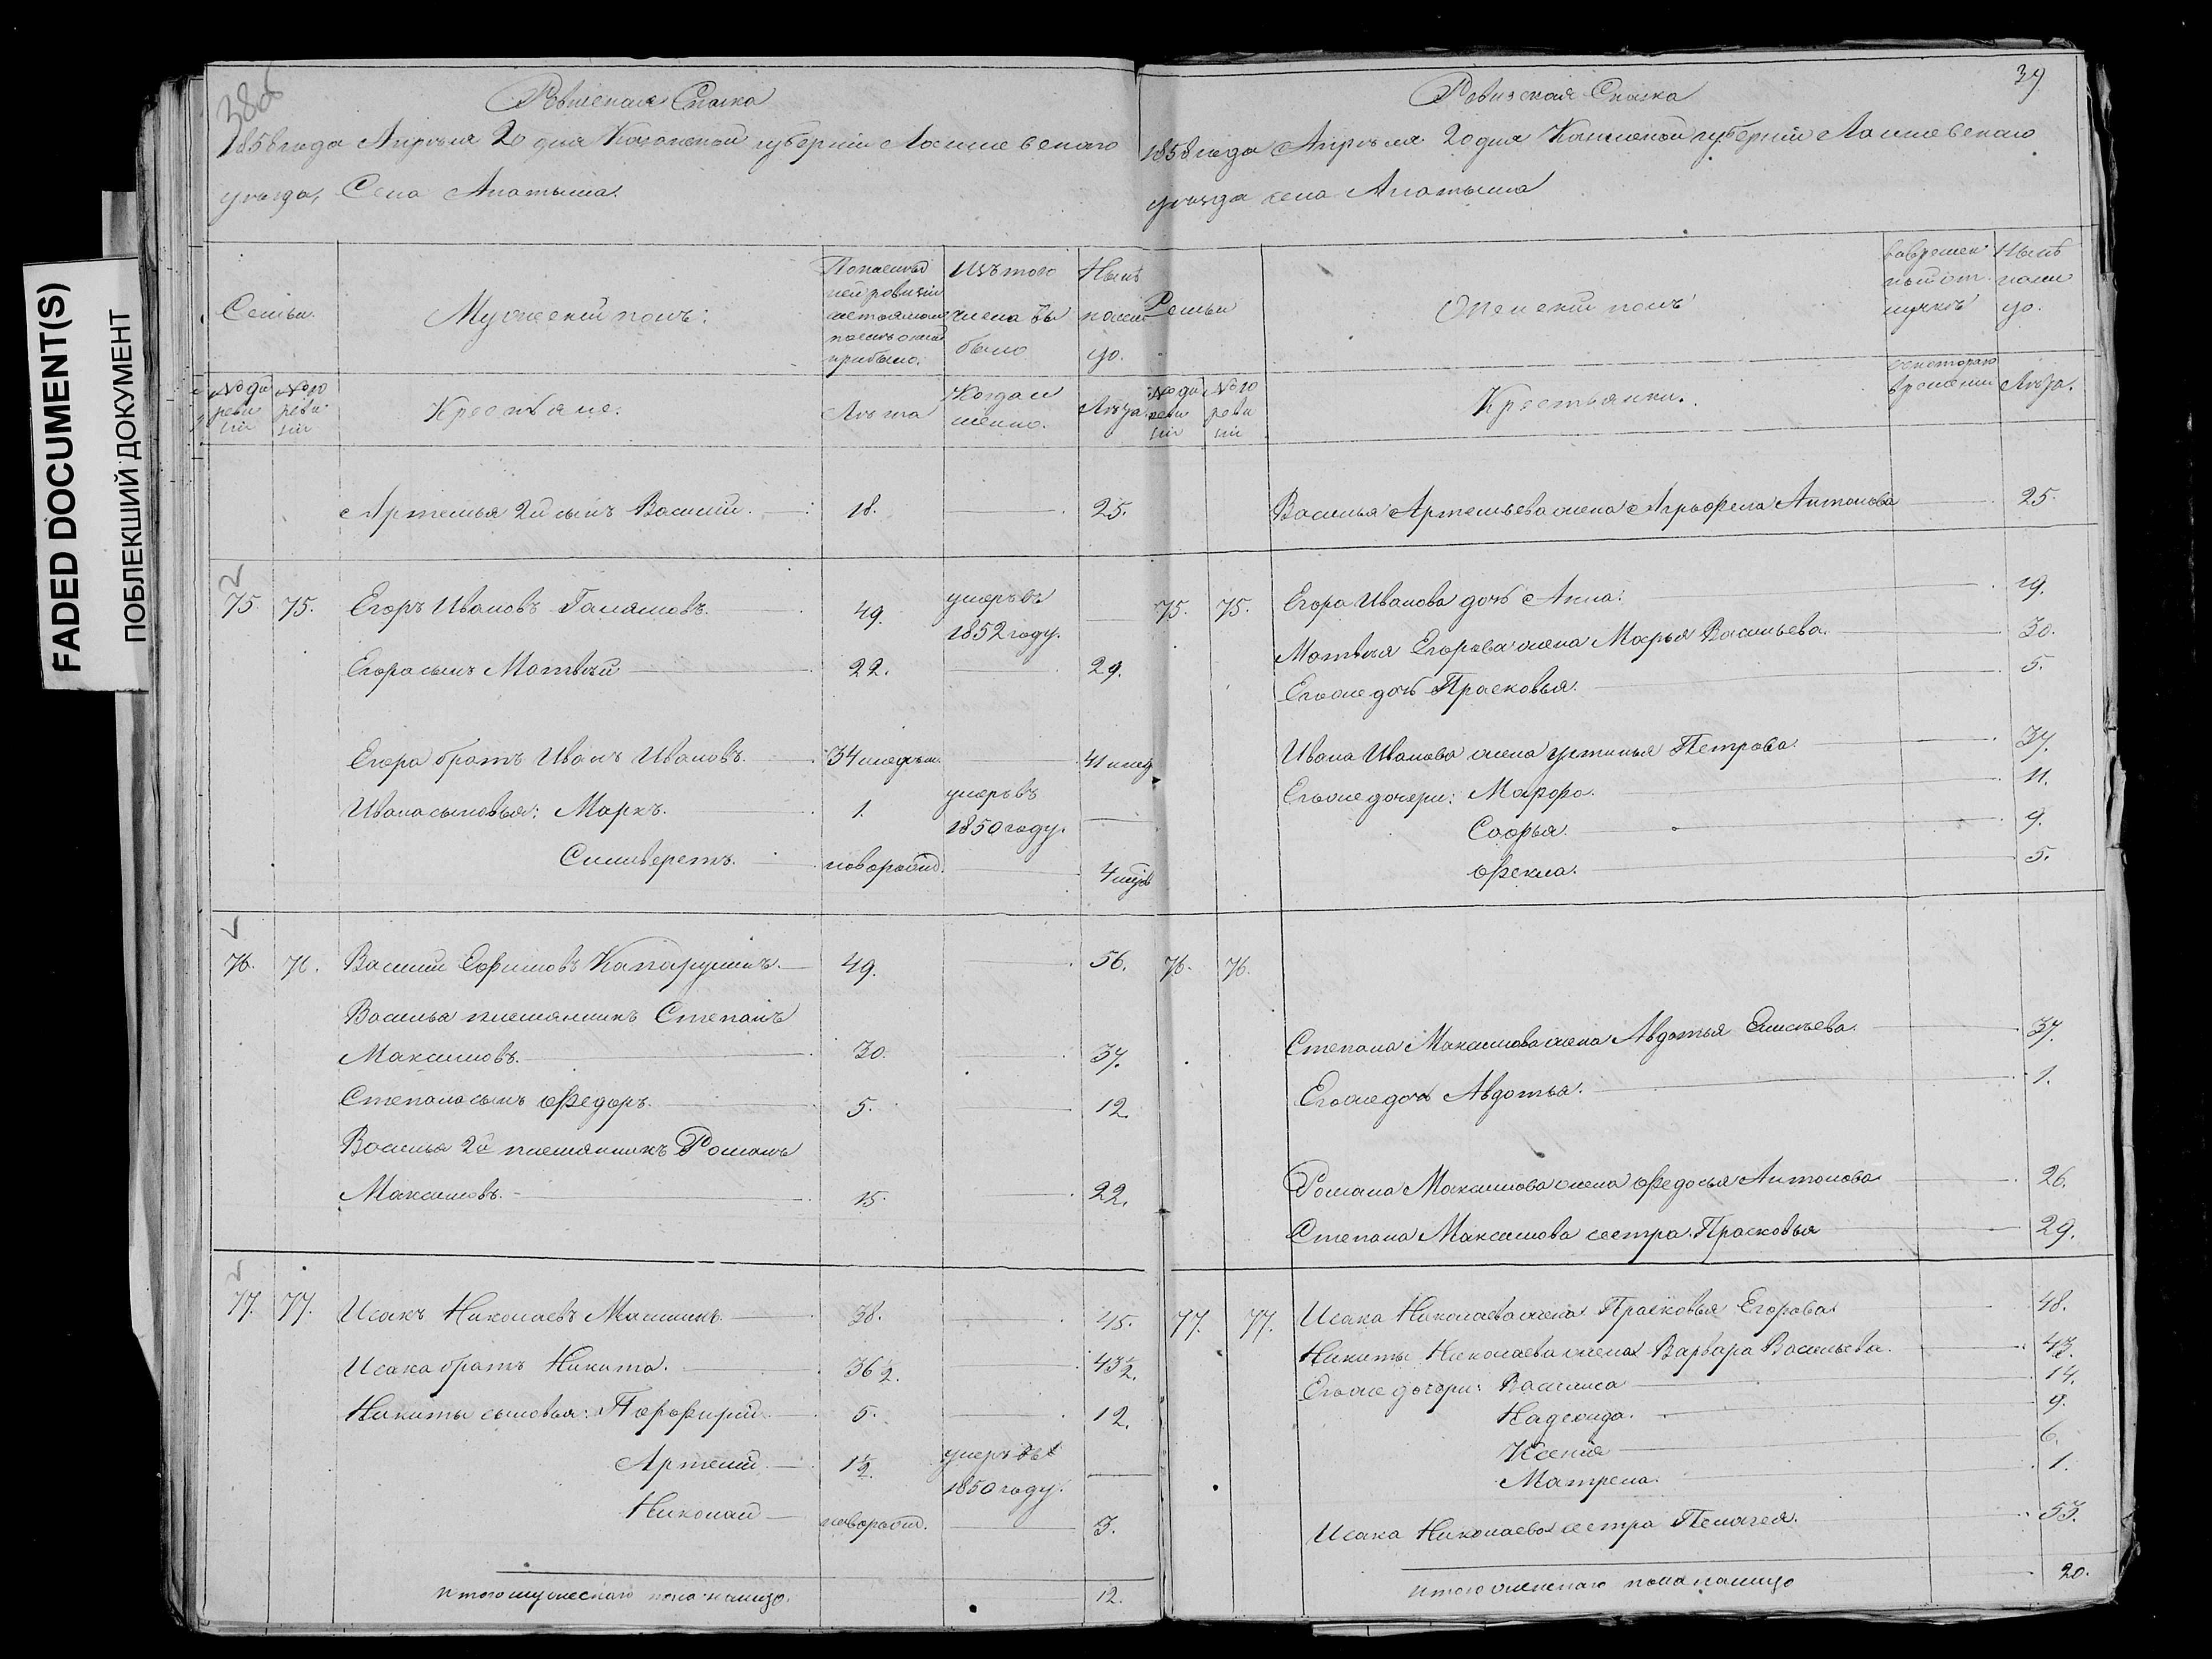 FADED DOCUMENT(S)
ПОБЛЕКШИЙ ДОКУМЕНТ
38об
Ревизская Сказка
1858 года Апреля 20 дня Казанской губернии Лаишевскаго
уезда, Села Анатыша.
Семьи.
Мужеский полъ:
По последней ревизіи состояло и после оной прибыло.
Изъ того числа выбыло
Ныне на лицо.
№ по реви зіи
№ 10 реви зіи
Крестьяне.
Лета
Когда именно.
Лета.
Артемья 2й сынъ Василий. 18. 25.
75. 75. Егоръ Ивановъ Галямовъ. 49. умеръ въ 1852 году.
Егора сынъ Матвей 22. 29.
Егора братъ Иванъ Ивановъ. 34 41
Ивана сыновья: Маркъ. 1. умеръ въ 1850 году.
Сильверстъ. новорожд. 4
76. 76. Василий Ефимовъ Капарушинъ. 49. 56.
Василья племянникъ Степанъ
Максимовъ. 30. 37.
Степана сынъ Федоръ. 5. 12.
Василья 2й племянникъ Романъ
Максимовъ. 15. 22.
77. 77. Исакъ Николаевъ Машинъ. 38. 45.
Исака братъ Никита. 36 1/2. 43 1/2.
Никиты сыновья: Порфирий. 5. 12.
Артемий. 1 1/2. умеръ въ 1850 году.
Николай новорожд. 3.
Итого мужескаго пола налицо. 12.
39
Ревизская Сказка
1858 года Апреля 20 дня Казанской губернии Лаишевскаго
уезда села Анатыша
Семьи
Женский полъ
Во временной отлучке
Ныне на лицо.
№ 10 реви зіи
Крестьянки.
с котораго времени
Лета.
Василья Артемьева жена Аграфена Антонова 25.
75. 75. Егора Иванова дочь Анна. 19.
Матвея Егорова жена Марья Васильева. 30.
Его же дочь Прасковья. 5.
Ивана Иванова жена Устинья Петрова. 37.
Его же дочери: Марфа. 11.
Софья. 9.
Фекла. 5.
76. 76.
Степана Максимова жена Авдотья Елисеева. 37.
Его же дочь Авдотья. 1.
Романа Максимова жена Федосья Антонова 26.
Степана Максимова сестра Прасковья 29.
77. 77. Исака Николаева жена Прасковья Егорова 48.
Никиты Николаева жена Варвара Васильева. 43.
Его же дочери: Василиса 14.
Надежда. 9.
Ксения 6.
Матрена. 1.
Исака Николаева сестра Пелагея. 53.
Итого женскаго пола налицо 20.